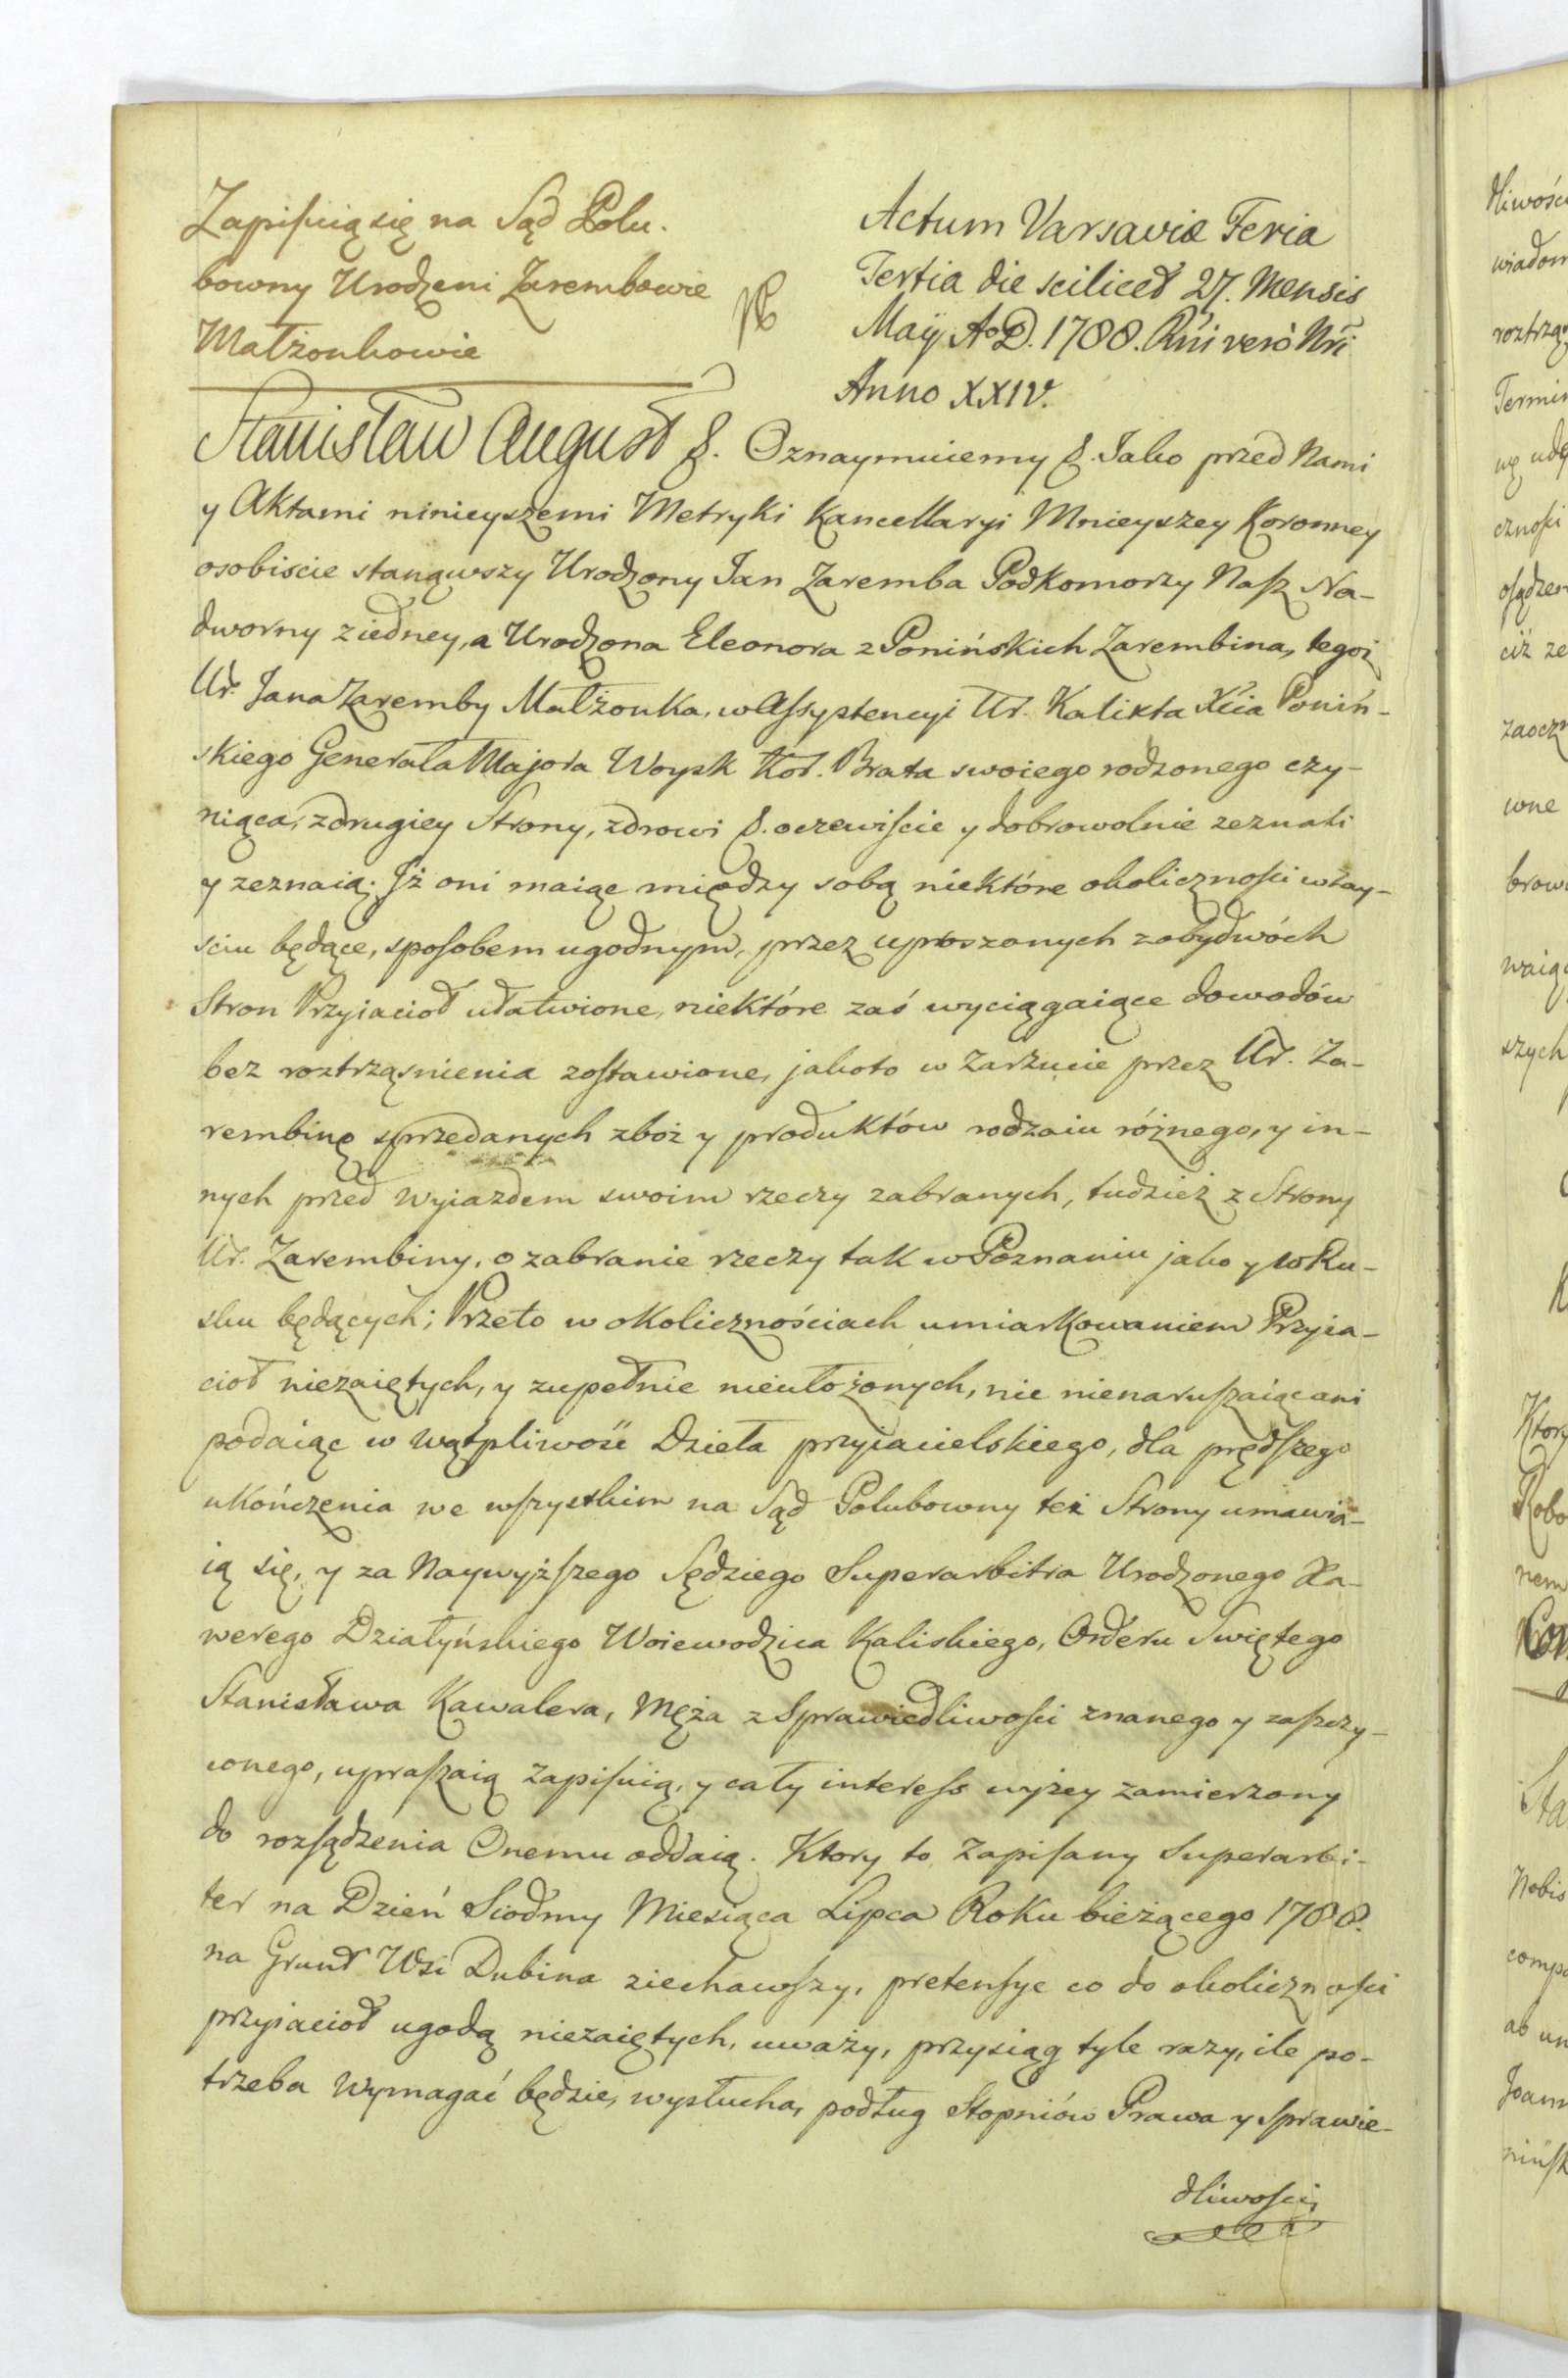 Zapisuią się na Sąd Polu-
bowny Urodzeni Zarembowie
Małżonkowie
Actum Varsaviæ Feria
Tertia die scilicet 27. Mensis
Maÿ Ao D. 1788. Rni verò Nri
Anno XXIV.
Stanisław August &. Oznaymuiemy &. Jako przed Nami
y Aktami ninieyszemi Metryki Kancellaryi Mnieyszey Koronney
osobiscie stanąwszy Urodzony Jan Zaremba Podkomorzy Nasz Na-
dworny z iedney, a Urodzona Eleonora z Ponińskich Zarembina, tegoż
Ur. Jana Zaremby Małżonka, w Assystencyi Ur. Kalixta Xcia Poniń-
skiego Generała Majora Woysk Kor. Brata swoiego rodzonego czy-
niąca, z drugiey Strony, zdrowi &. oczewiście y dobrowolnie zeznali
y zeznaią. Iż oni maiąc między sobą niektóre okoliczności w zay-
sciu będące, sposobem ugodnym, przez uproszonych z obydwóch
Stron Przyiacioł ułatwione, niektóre zaś wyciągaiące dowodów
bez roztrząsnienia zostawione, jakoto w Zarzucie przez Ur. Za-
rembinę sprzedanych zboż y produktów rodzaiu różnego, y in-
nych przed Wyiazdem swoim rzeczy zabranych, tudzież z Strony
Ur. Zarembiny, o zabranie rzeczy tak w Poznaniu jako y w Ru-
sku będących; Przeto w okolicznościach umiarkowaniem Przyia-
cioł niezaiętych, y zupełnie nieułożonych, nic nienaruszaiąc ani
podaiąc w wątpliwość Dzieła przyiacielskiego, dla prędszego
ukończenia we wszystkim na Sąd Polubowny też Strony umawia-
ią się, y za Naywyższego Sędziego Superarbitra Urodzonego Xa-
werego Działyńskiego Woiewodzica Kaliskiego, Orderu Swiętego
Stanisława Kawalera, Męża z Sprawiedliwości znanego y zaszczy-
conego, upraszaią Zapisuią, y cały interess wyżey zamierzony
do rozsądzenia Onemu oddaią. Ktory to Zapisany Superarbi-
ter na Dzień Siodmy Miesiąca Lipca Roku bieżącego 1788.
na Grunt Wsi Dubina ziechawszy, pretensye co do okoliczności
przyiacioł ugodą niezaiętych, uważy, przysiąg tyle razy, ile po-
trzeba Wymagać będzie, wysłucha, podług Stopniów Prawa y Sprawie-
dliwości,